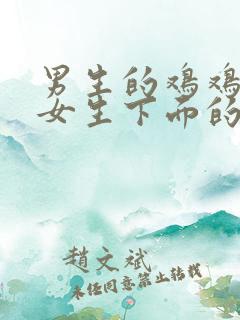 男生的鸡鸡
女生下面的
趙文斌
未经同意禁止转载